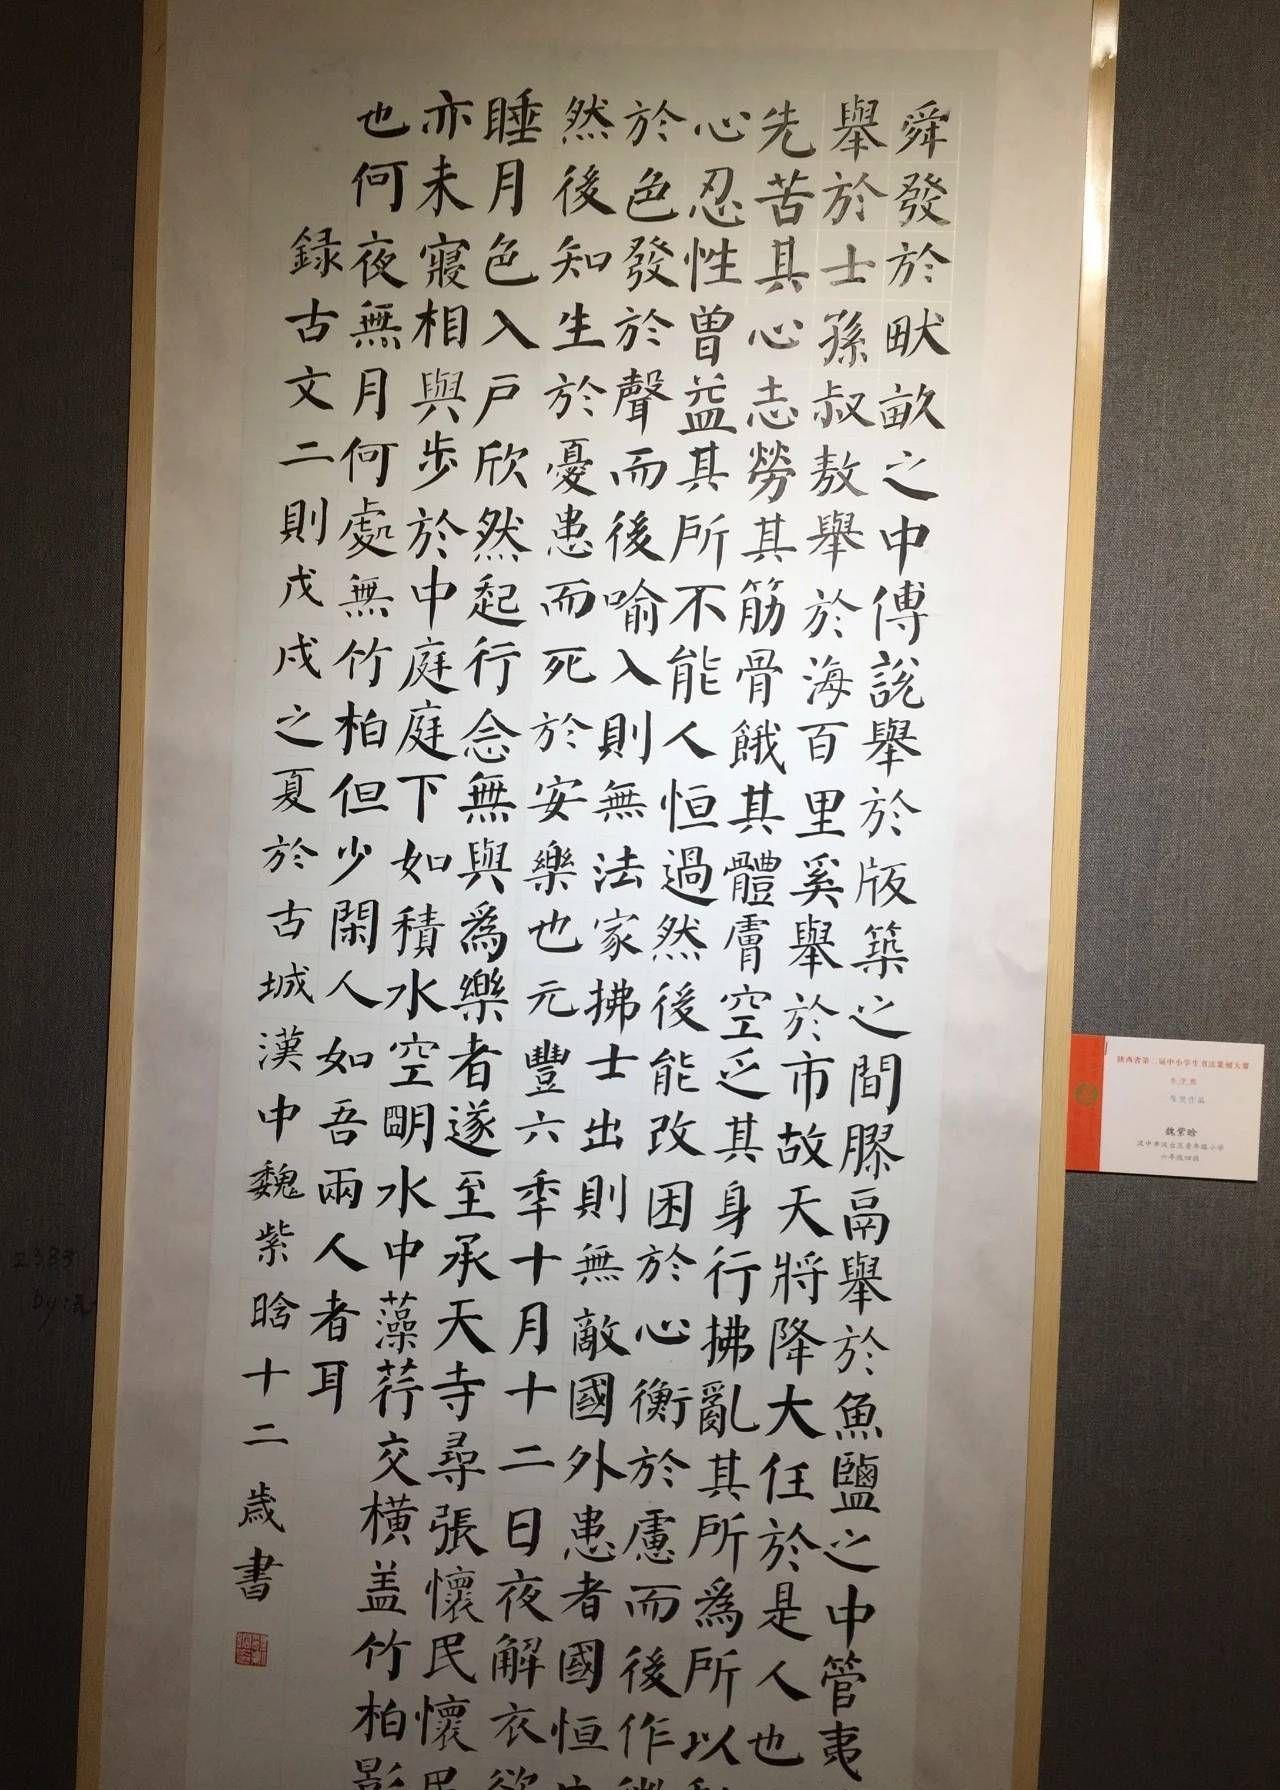 舜發於畎畝之中傅説舉於版築之間膠鬲舉於魚鹽之中管夷
舉於士孫叔敖舉於海百里奚舉於市故天將降大任於是人也
先苦其心志勞其筋骨餓其體膚空乏其身行拂亂其所爲所以
心忍性曾益其所不能人恒過然後能改困於心衡於慮而後作
於色發於聲而後喻入則無法家拂士出則無敵國外患者國恒
然後知生於憂患而死於安樂也元豐六秊十月十二日夜解衣欲
睡月色入户欣然起行念無與爲樂者遂至承天寺尋張懷民懷民
亦未寢相與步於中庭庭下如積水空明水中藻荇交横盖竹柏影
也何夜無月何處無竹柏但少閑人如吾兩人者耳
録古文二則戊戌之夏於古城漢中魏紫晗十二歲書
陕西省第二届中小学生书法篆刻大赛
魏紫晗
汉中市汉台区青年路小学
六年级四班
2383